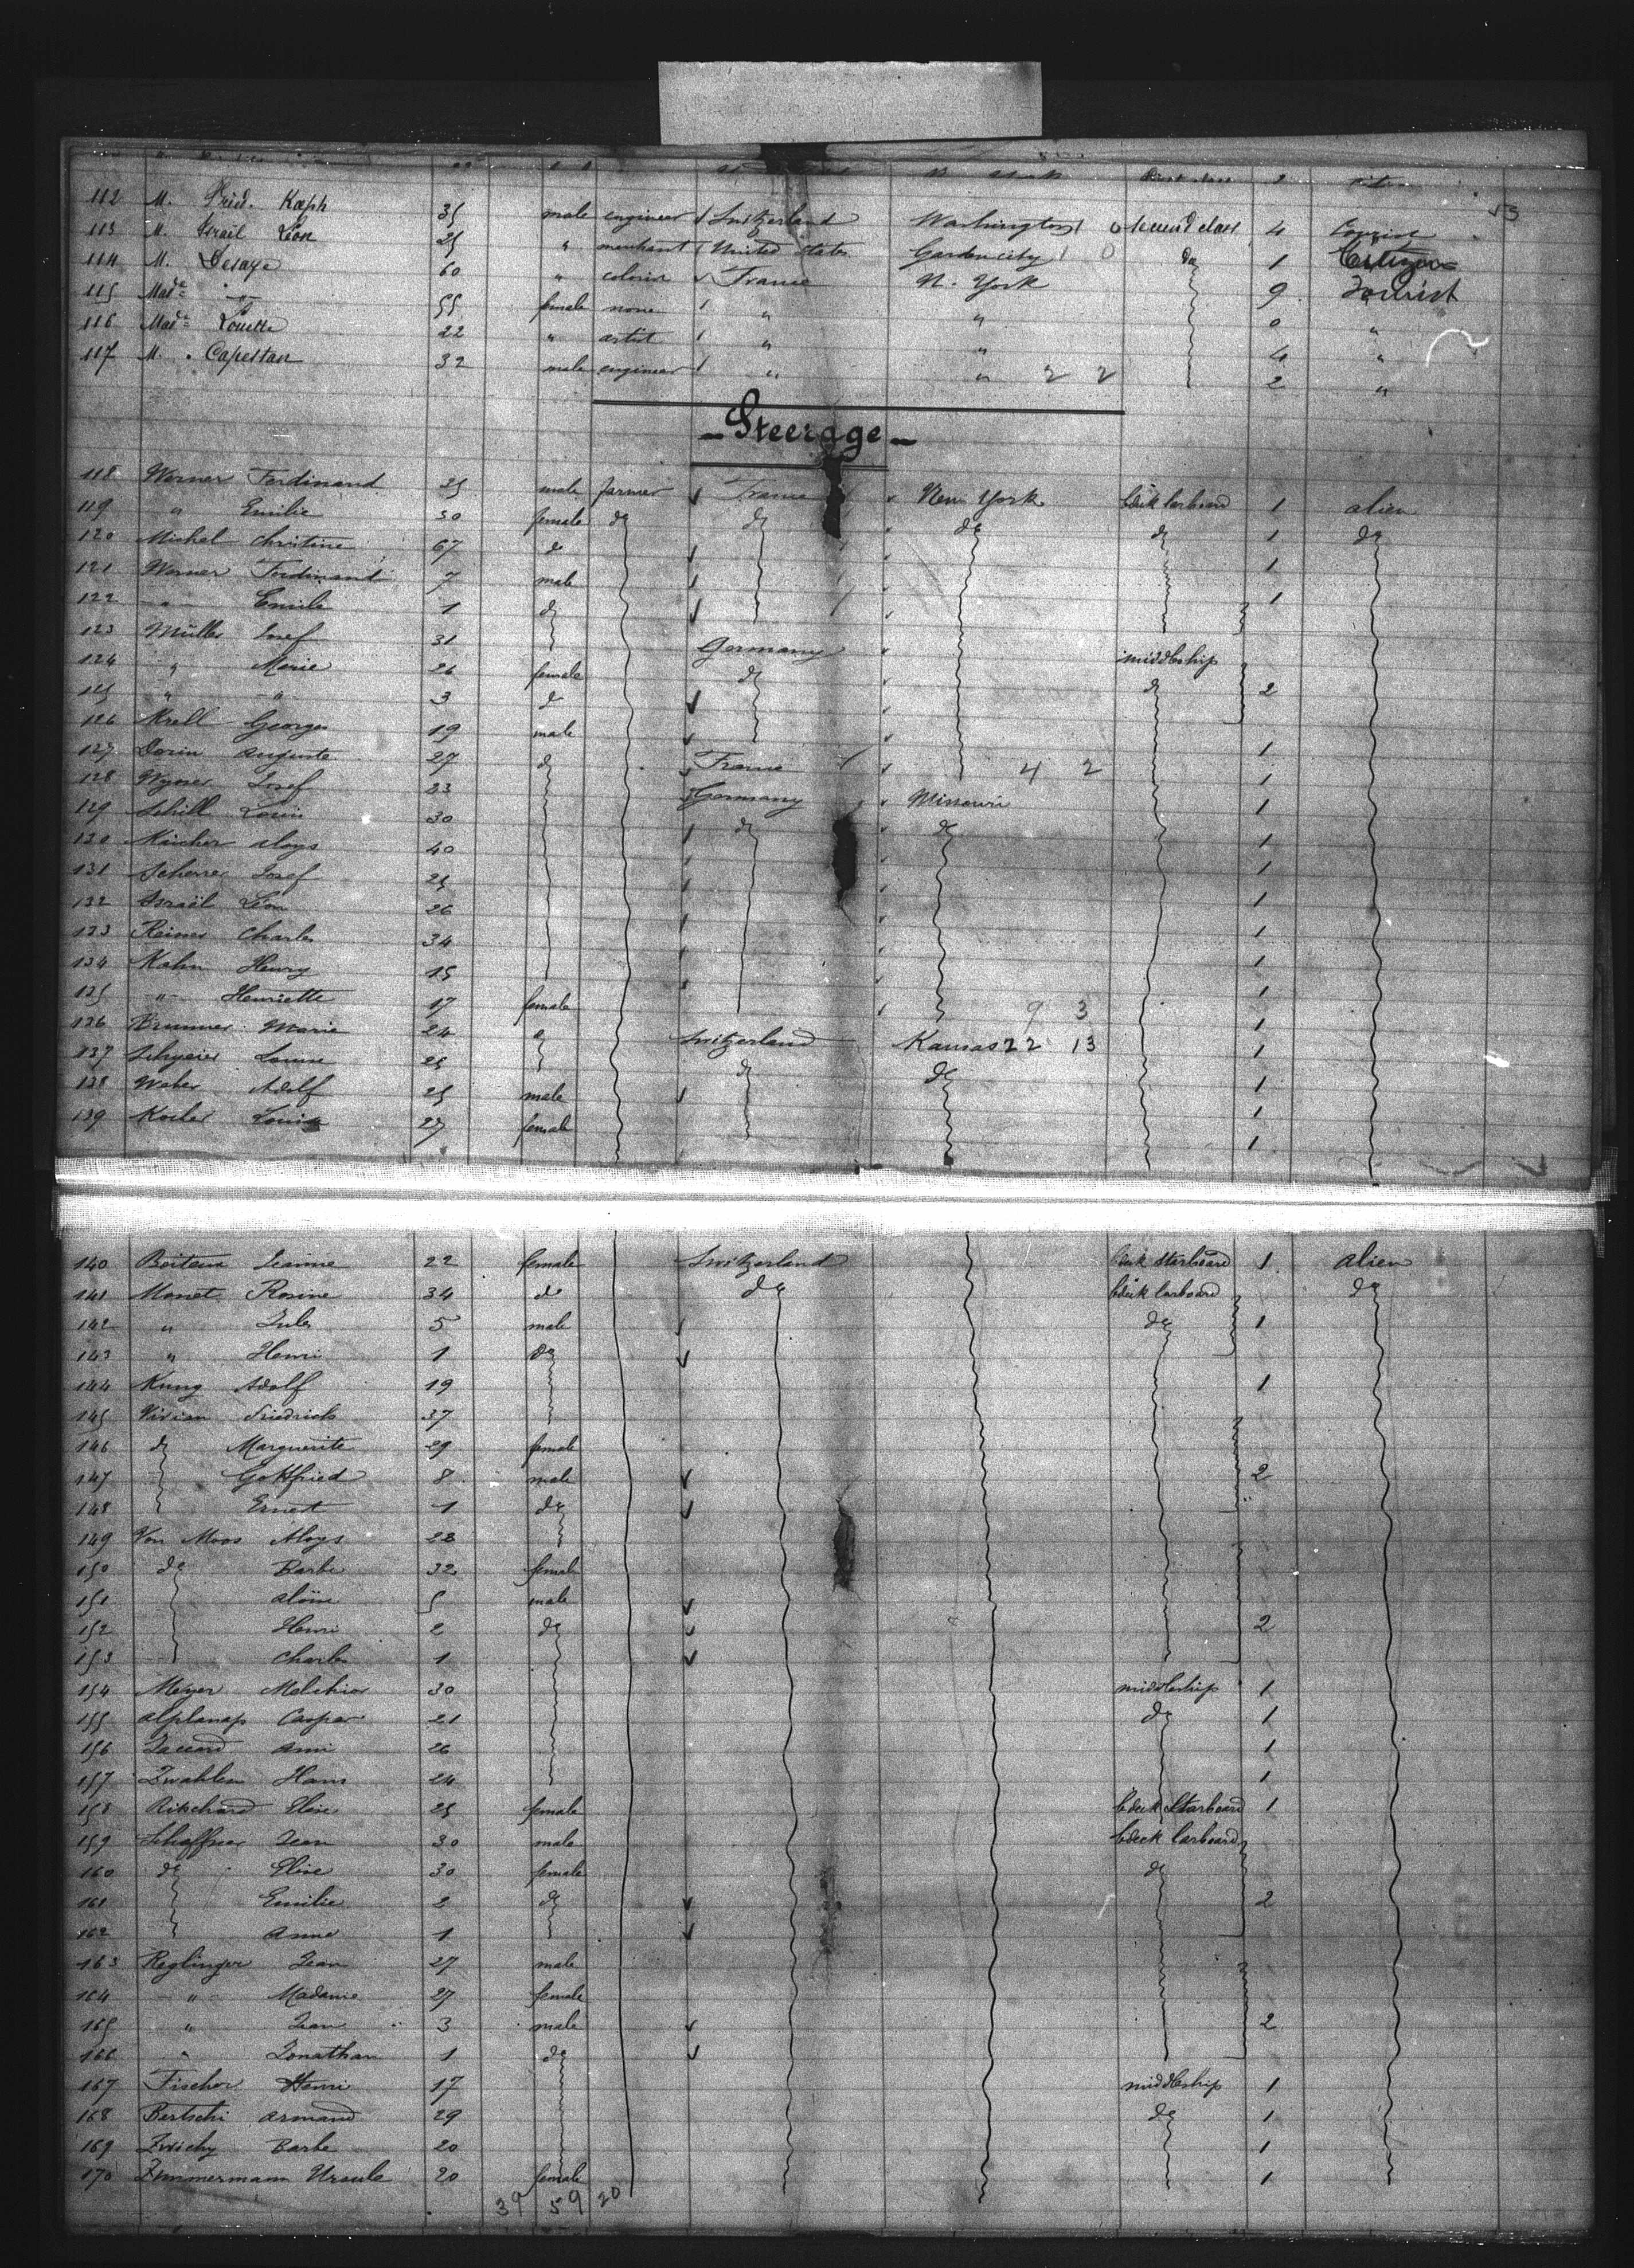 53
112 M. Fried. Kaph 35 male engineer Switzerland Washington 1 0 second class 4 tourist
113 M. Israil Léon 25 " merchant United States Garden city 1 0 do 1 Citizen
114 M. Delaye 60 " colonir France N. York 9 Tourist
115 Made " 55 female none " " 0 "
116 Made Louette 22 " artist " " 4 "
117 M. Capestan 32 male engineer " " 2 2 2 "
- Steerage -
118 Werner Ferdinand 25 male farmer France New York bdeck larboard 1 alien
119 " Emilie 30 female do do do do 1 do
120 Michel Christine 67 do 1
121 Werner Ferdinand 7 male 1
122 " Emile 1 do
123 Müller Josef 31 Germany middleship
124 " Marie 26 female do do 2
125 " " 3 do
126 Krell Georges 19 male 1
127 Dorin Auguste 27 do France 4 2 1
128 Wyner Josef 23 Germany Missouri 1
129 Schill Louis 30 do do 1
130 Kircher Aloys 40 1
131 Scherrer Josef 25 1
132 Israël Léon 26 1
133 Reiner Charles 34 1
134 Kahn Henry 15 1
135 " Henriette 17 female 9 3 1
136 Brunner Marie 24 do Switzerland Kansas 22 13 1
137 Louise 25 do do 1
138 Weber Adolf 25 male 1
139 Kocher Louise 27 female 1
140 Jeanne 22 female Switzerland deck Starboard 1 alien
141 Monet Rosine 34 do do bdeck larboard do
142 " Jules 5 male do 1
143 " Henri 1 do
144 Kung Adolf 19 1
145 Vivian Friedrich 37
146 do Marguerite 29 female
147 Gottfried 8 male 2
148 Ernest 1 do
149 Von Moos Aloys 28
150 do Barbe 32 female
151 Aloïse 5 male
152 Henri 2 do 2
153 Charles 1
154 Meyer Melchior 30 middleship 1
155 Alplanap Caspar 21 do 1
156 Jaccard Ami 26 1
157 Zwahlen Hans 24 1
158 Ritschard Elise 25 female bdeck Starboard 1
159 Schaffner Jean 30 male bdeck larboard
160 do Elise 30 female do
161 Emilie 2 do 2
162 Anna 1
163 Reglinger Jean 27 male
164 " Madame 27 female
165 " Jean 3 male 2
166 " Jonathan 1 do
167 Fischer Henri 17 middleship 1
168 Bertschi Armand 29 do 1
169 Zwichy Barbe 20 1
170 Zimmermann Ursule 20 female 1
39 59 20